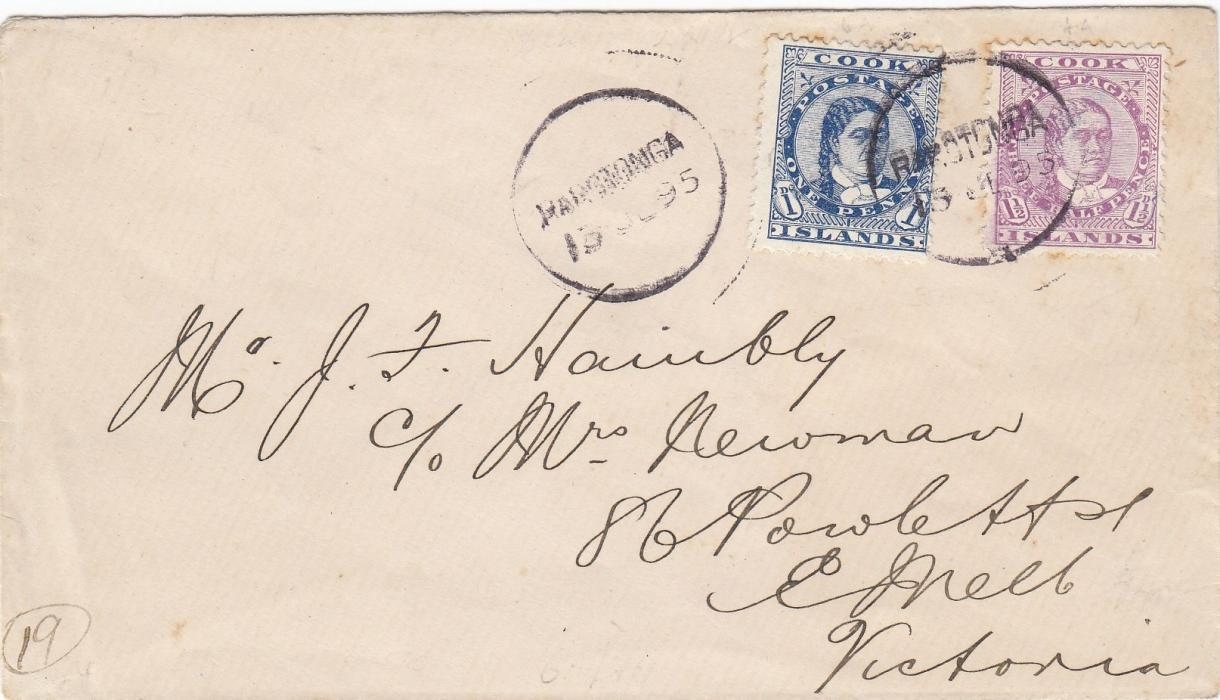 RAROTONGA
13 JUL 95
COOK
POSTAGE
ONE PENNY
1D. 1D.
ISLANDS
RAROTONGA
13 JUL 95
COOK
POSTAGE
HALF PENCE
1½ 1½D.
ISLANDS
Mr. J. F. Hambly
c/o Mrs Newman
86 Powlett St
E Melb
Victoria
19